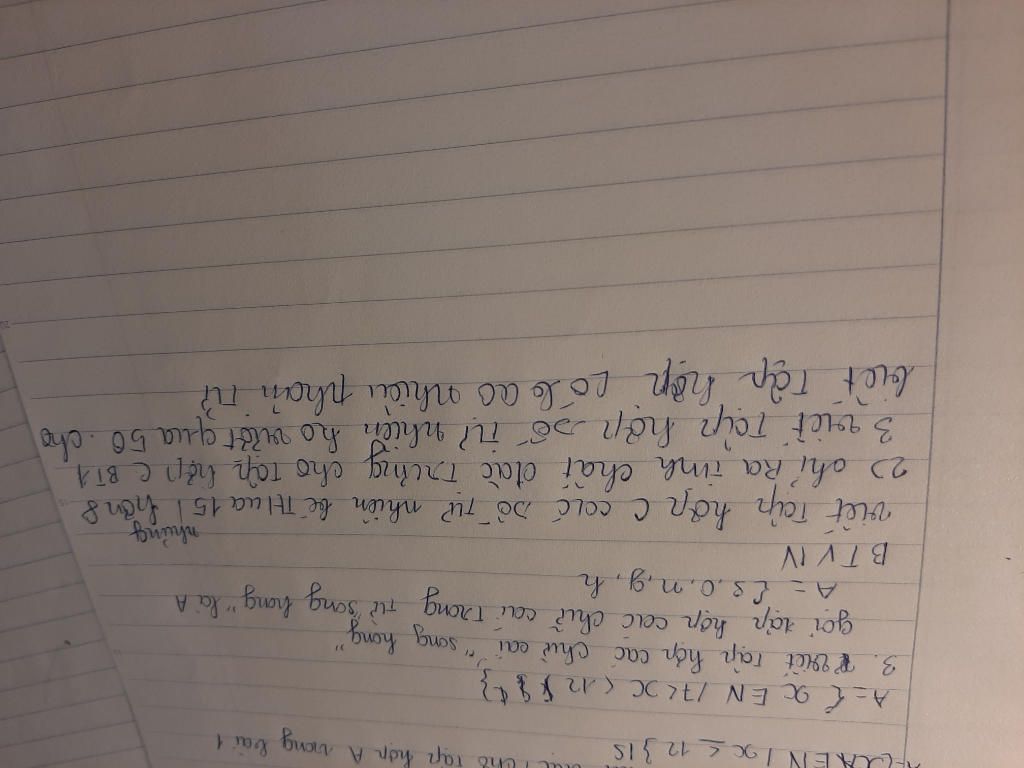 cho tập hợp A trong bài 1
A={x∈N / x ≤ 12}
A={x∈N / 7<x<12}
3. viết tập hợp các chữ cái "song hong"
gọi tập hợp các chữ cái trong từ "song hong" là A
A = {s, o, n, g, h
BTVN
những
viết tập hợp C các số tự nhiên bé 15 / hơn 8
2) chỉ ra tính chất đặc trưng cho tập hợp C BT1
3 viết tập hợp số tự nhiên ko vượt qua 50. cho
biết tập hợp có bao nhiêu phần tử